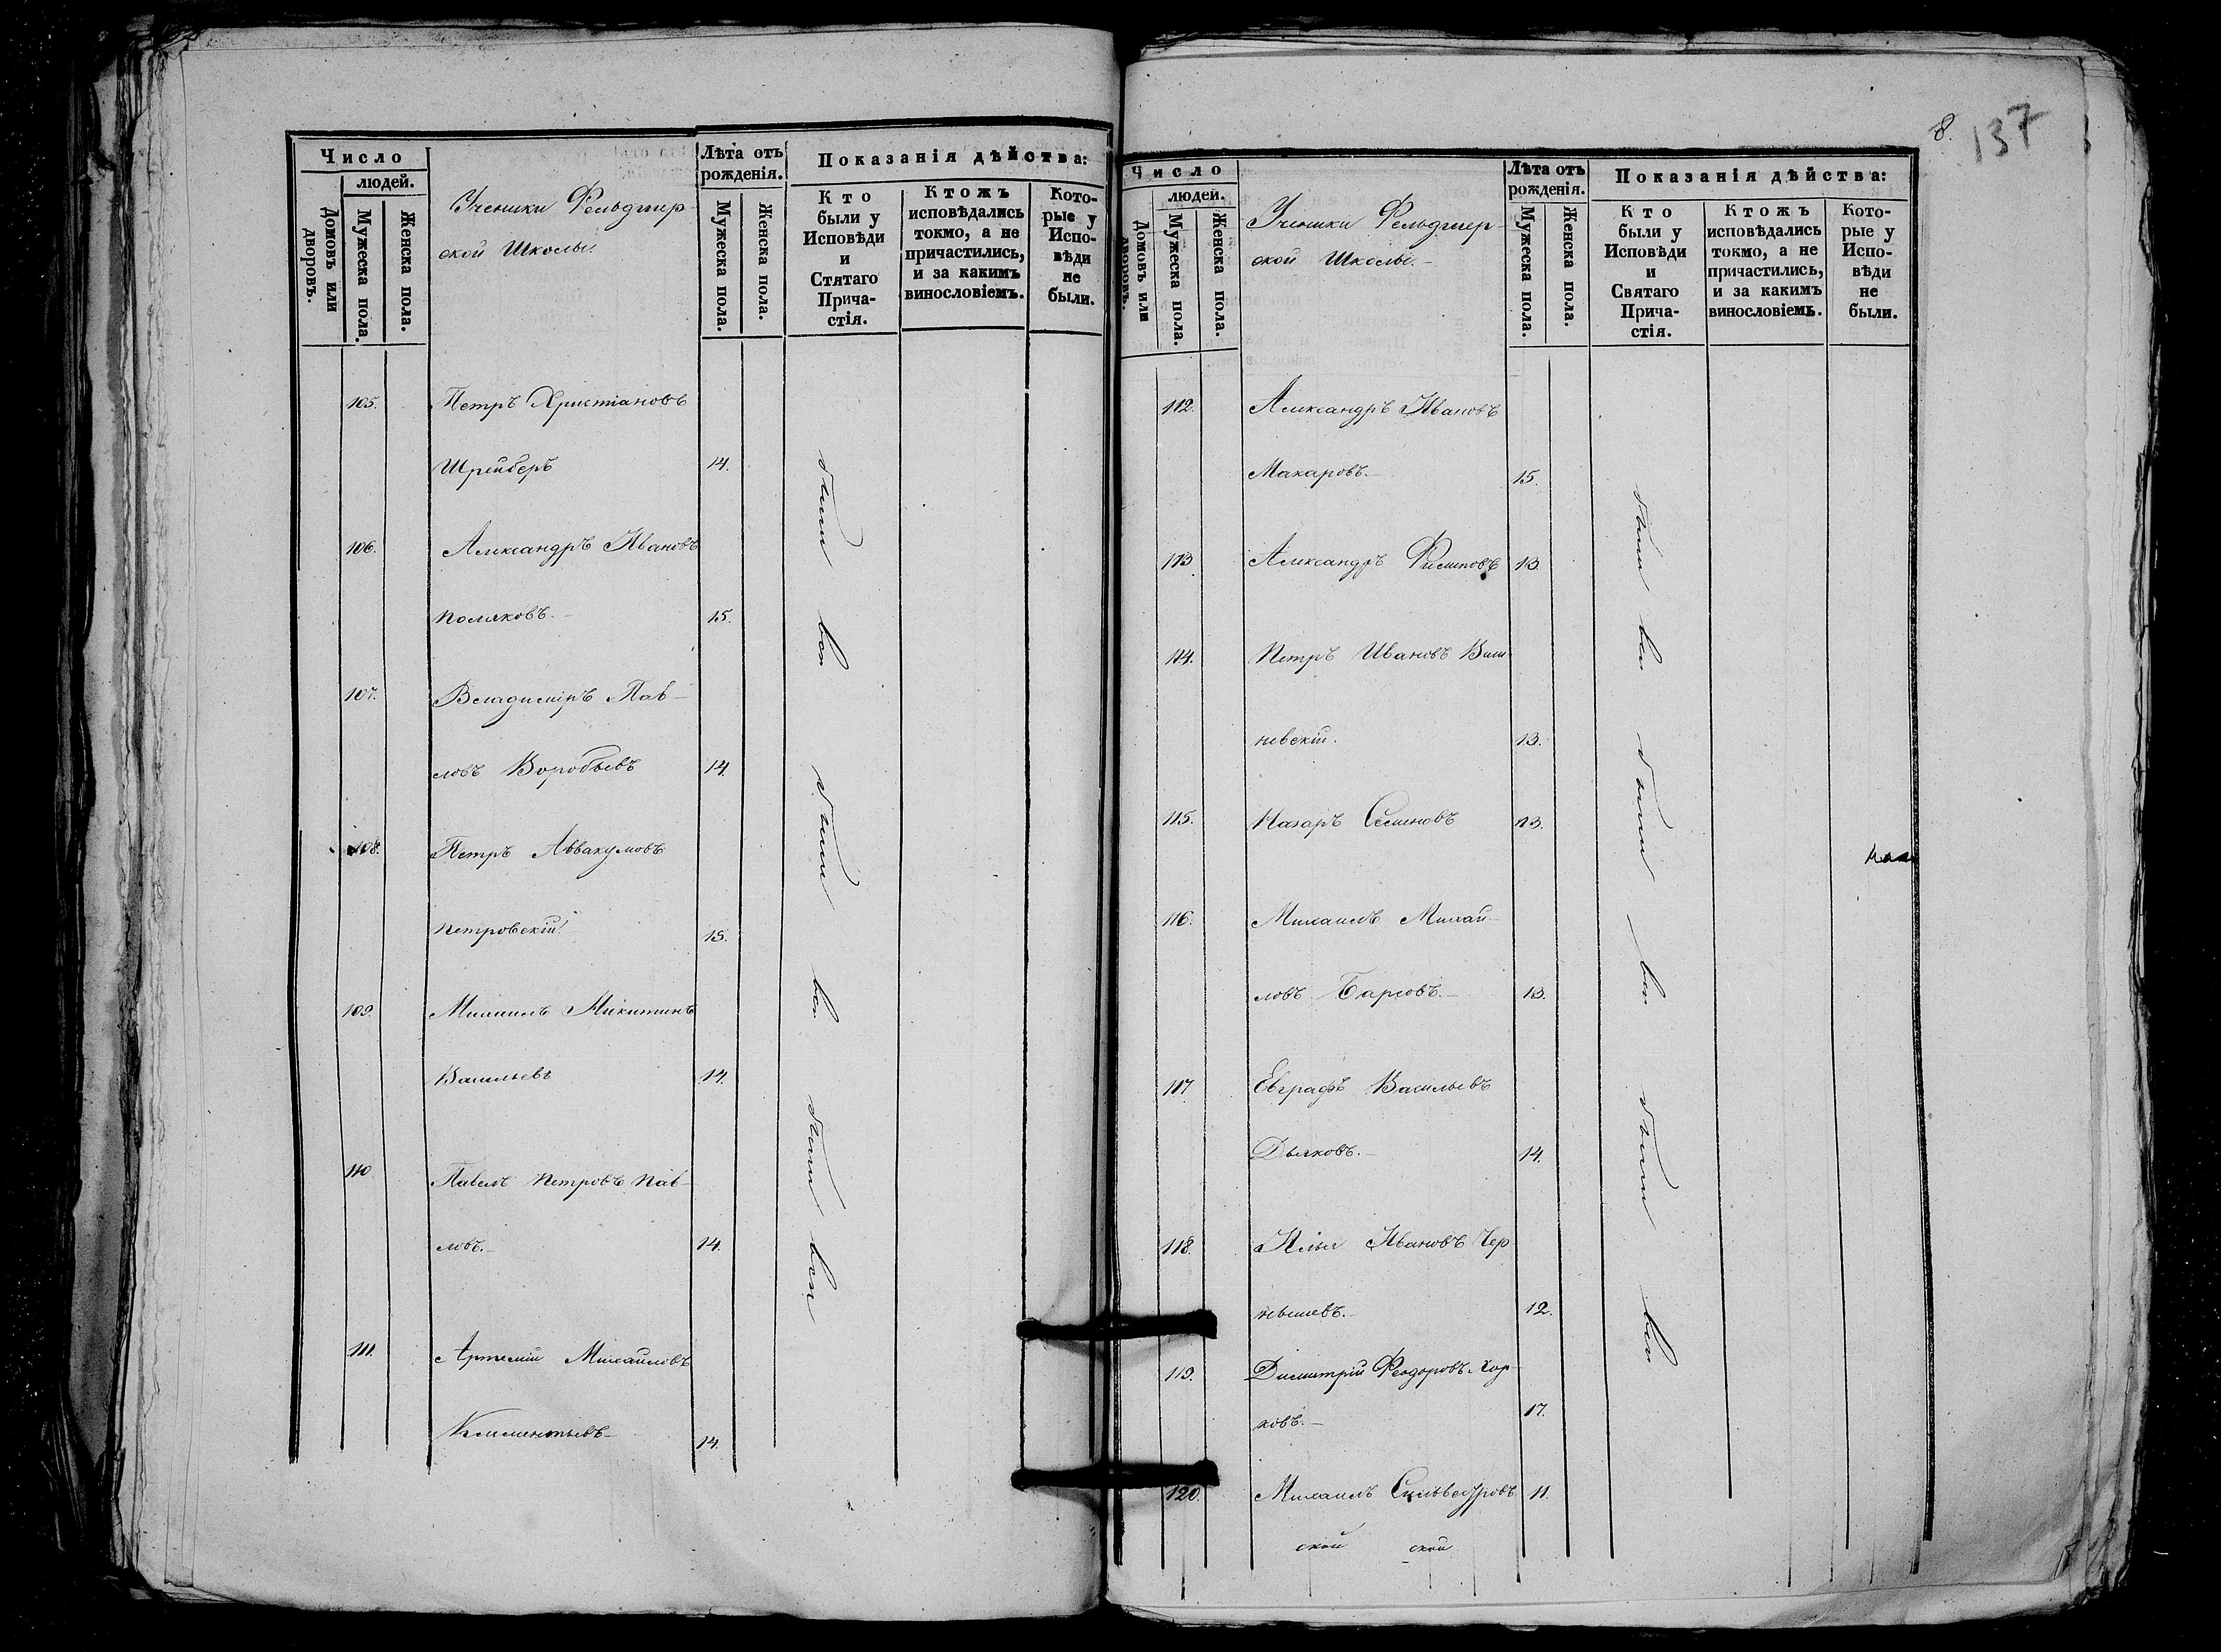 Число
людей.
Домовъ или дворовъ.
Мужеска пола.
Женска пола.
Ученики Фельдшер-
ской Школы.
Лѣта отъ
рожденія.
Мужеска пола.
Женска пола.
Показанія дѣйства:
Кто
были у
Исповѣди
и
Стятаго
Прича-
стія.
Ктожъ
исповѣдались
токмо, а не
причастились,
и за какимъ
винословіемъ.
Кото-
рые у
Испо-
вѣди
не
были.
105. Петръ Христіановъ
Шрейберъ 14.
106. Александръ Ивановъ
Поляковъ.- 15.
107. Владиміръ Пав-
ловъ Воробьевъ 14.
108. Петръ Аввакумовъ
Петровскій 15.
109. Михаилъ Никитинъ
Васильевъ 14.
110 Павелъ Петровъ Пав-
ловъ.- 14.
111. Артемій Михайловъ
Климентьевъ- 14.
были вси были вси были вси
8. 137
Число
людей.
Домовъ или дворовъ.
Мужеска пола.
Женска пола.
Ученики Фельдшер-
ской Школы.-
Лѣта отъ
рожденія.
Мужеска пола.
Женска пола.
Показанія дѣйства:
Кто
были у
Исповѣди
и
Святаго
Прича-
стія.
Ктожъ
исповѣдались
токмо, а не
причастились,
и за какимъ
винословіемъ.
Кото-
рые у
Испо-
вѣди
не
были.
112. Александръ Ивановъ
Макаровъ.- 15.
113. Александръ Филиповъ 13.
114. Петръ Ивановъ Виш-
невскій. 13.
115. Назаръ Семеновъ 13.
116. Михаилъ Михай-
ловъ Барсовъ.- 13.
117 Евграфъ Васильевъ
Дьяковъ.- 14.
118. Илья Ивановъ Чер-
нышевъ.- 12.
119. Димитрій Феодоровъ Хор-
ковъ.- 17.
120. Михаилъ Сильвестровъ 11.
ской ской
были вси были вси были вси